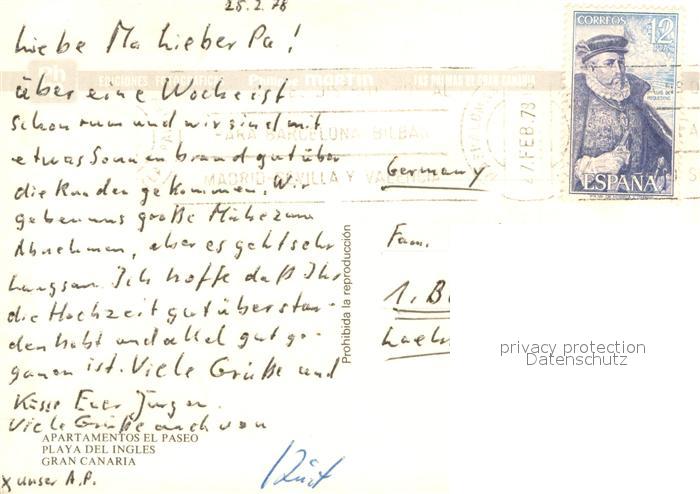 25.2.78
Liebe Ma Lieber Pa!
über eine Woche ist
schon rum und wir sind mit
etwas Sonnenbrand gut über
die Runden gekommen. Wir
geben uns große Mühe zum
Abnehmen, aber es geht sehr
langsam. Ich hoffe daß Ihr
die Hochzeit gut überstan-
den habt und alles gut ge-
gangen ist. Viele Grüße und
Küsse Euer Jürgen
Viele Grüße auch von
x unser A.P.
APARTAMENTOS EL PASEO
PLAYA DEL INGLES
GRAN CANARIA
Prohibida la reproducción
EDICIONES FOTOGRAFICAS MARTIN LAS PALMAS DE GRAN CANARIA
PARA BARCELONA BILBAO
MADRID SEVILLA Y VALENCIA
27 FEB. 78
CORREOS 12
PTAS
LUIS DE REQUESENS
ESPAÑA
Germany
Fam.
1. B
privacy protection
Datenschutz